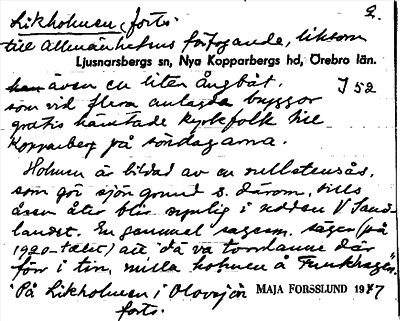 Likholmen, forts. 2.
till allmänhetens förfogande, liksom
Ljusnarsbergs sn, Nya Kopparbergs hd, Örebro län.
han även en liten ångbåt, I 52
som vid flera anlagda bryggor
gratis hämtade kyrkfolk till
Kopparberg på söndagarna.
Holmen är bildad av en rullstensås,
som gör sjön grund s. därom, tills
åsen åter blir synlig i udden V. Sand-
landet. En gammal sagesm. säger (på
1920-talet) att "då va torrlanne där
för i tin, mella holmen å Funkhagen".
På Likholmen i Olovsjön MAJA FORSSLUND 1977
forts.